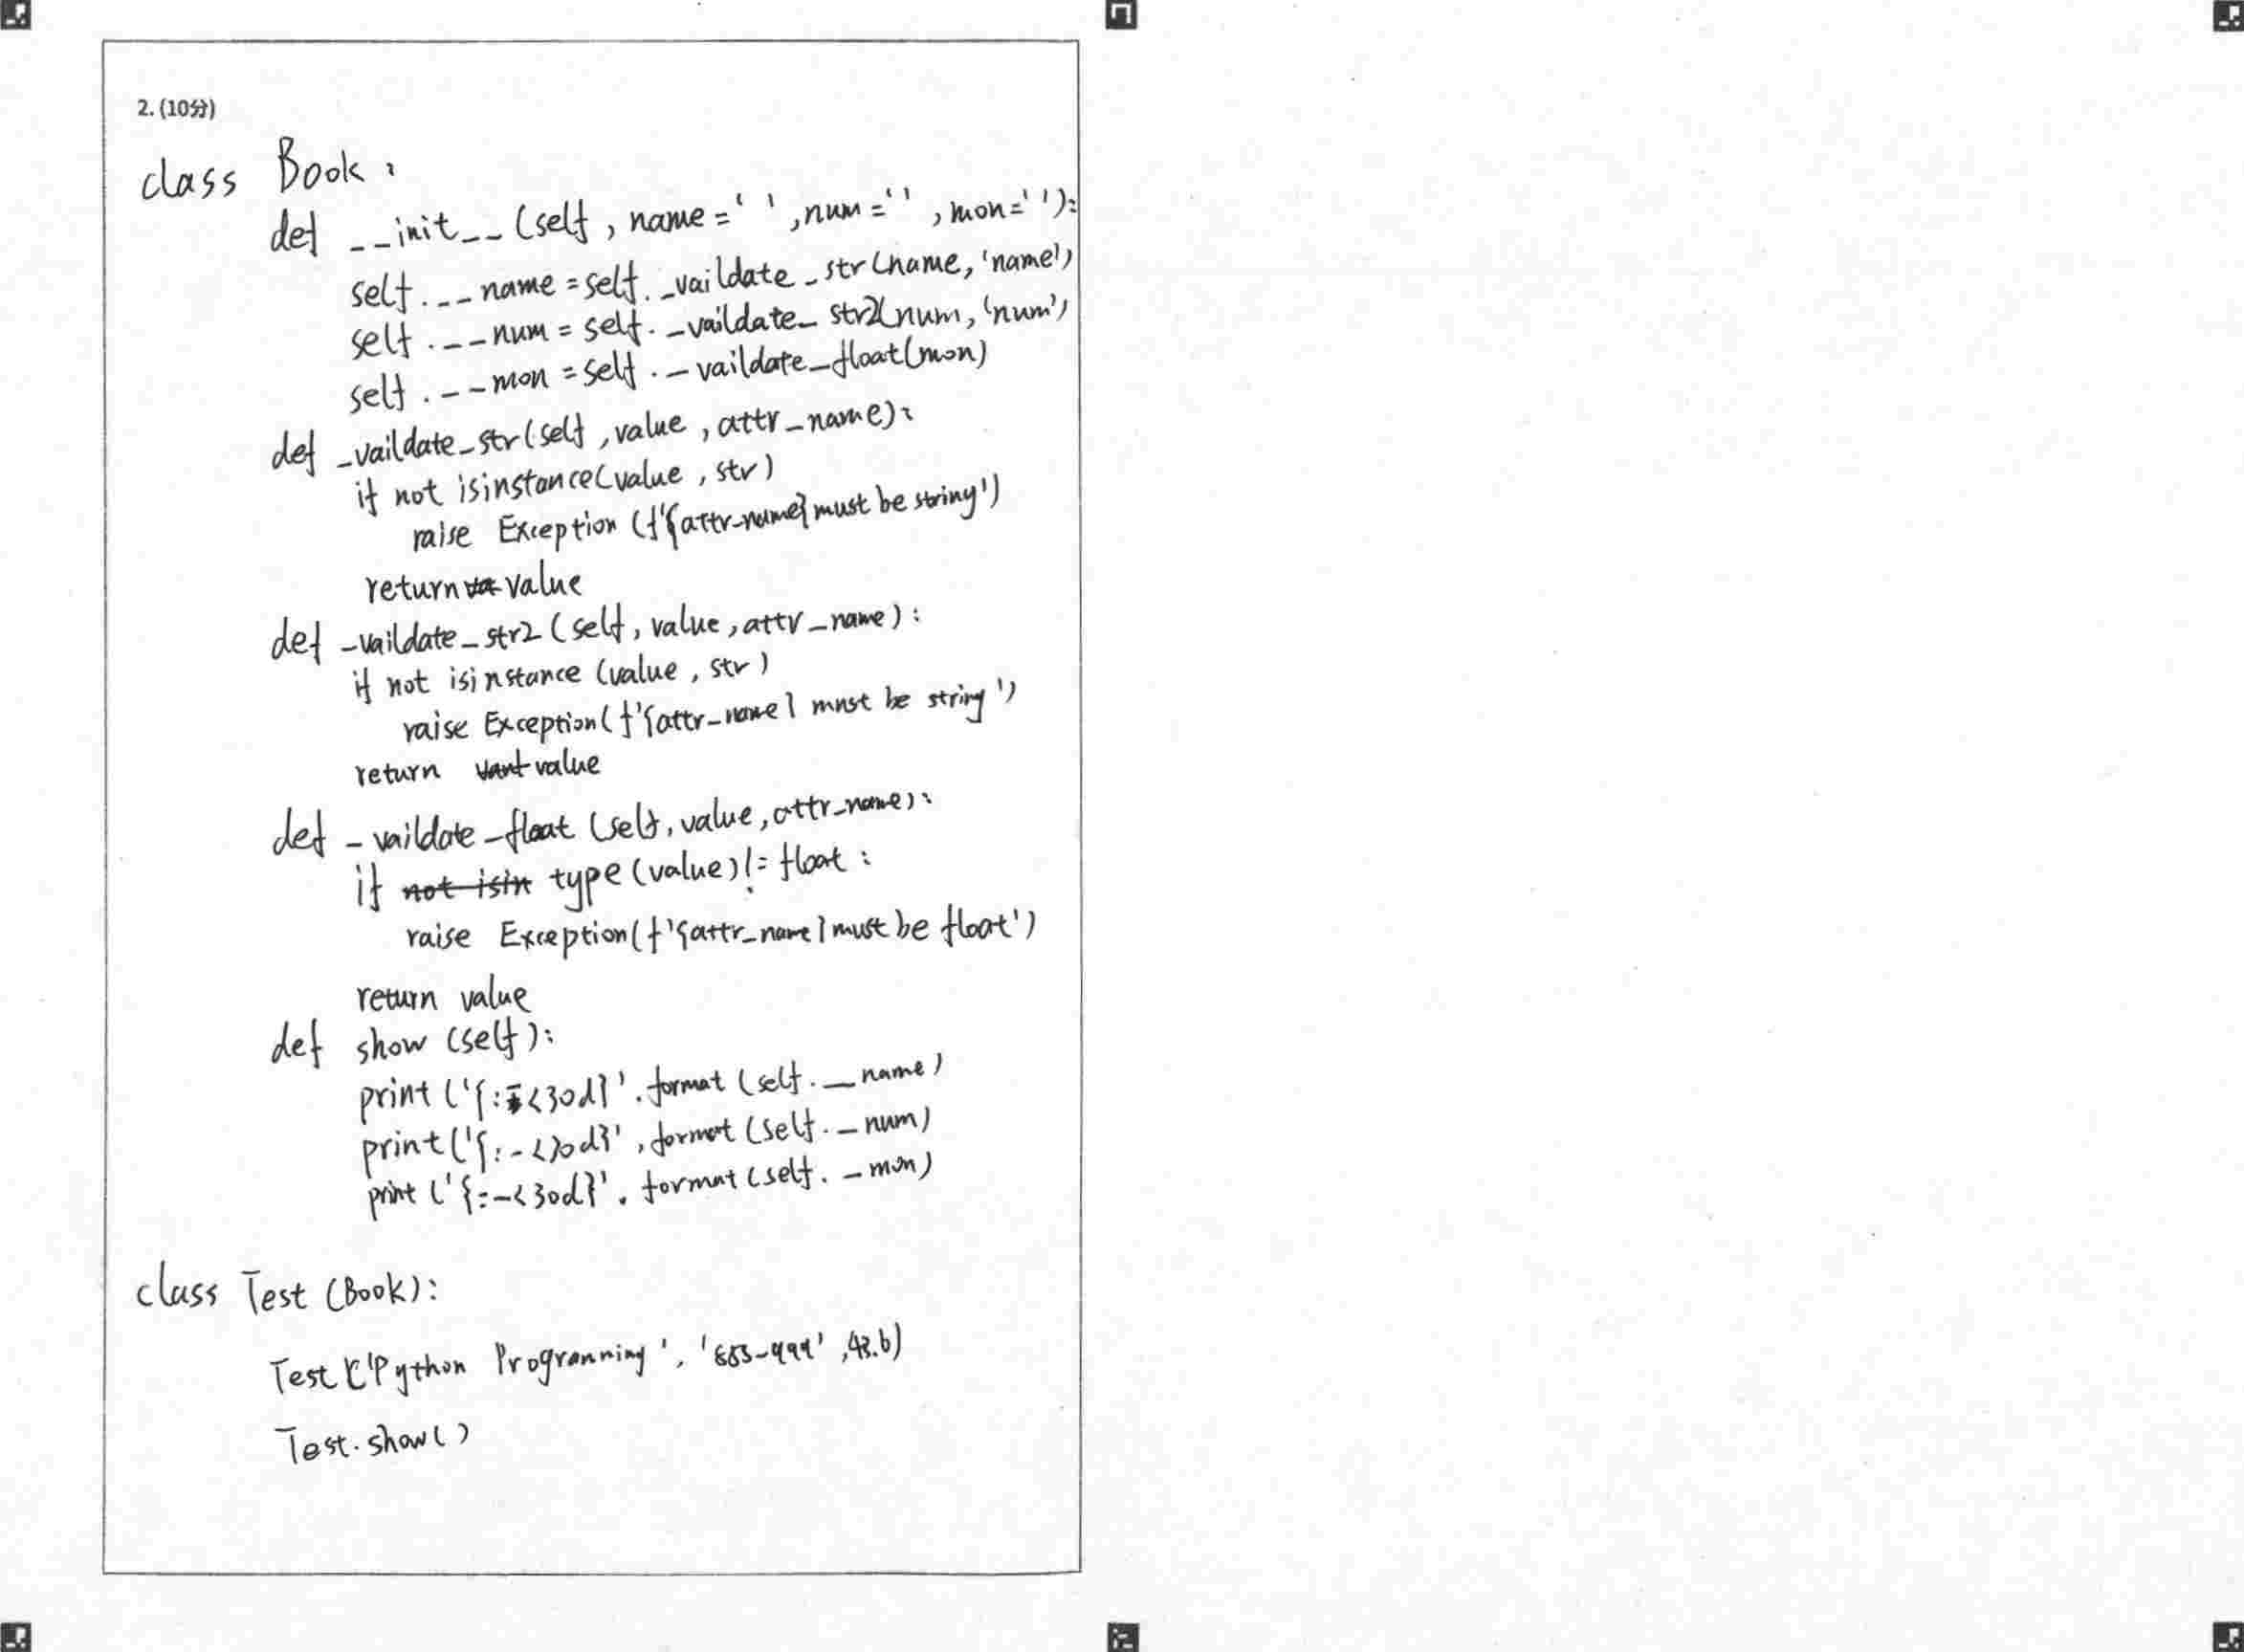 2. (10分)
class Book:
def __init__(self, name='', num='', mon=''):
self.__name=self._vaildate_str(name,'name')
self.__num=self._vaildate_str2(num,'num')
self.__mon=self._vaildate_float(mon)
def _vaildate_str(self,value,attr_name):
if not isinstance(value, str)
raise Exception(f'{attr_name}must be string')
return value
def _vaildate_str2(self, value,attr_name):
if not isinstance(value, str)
raise Exception(f'{attr_name} must be string')
return value
def _vaildate_float(self,value,attr_name):
if type(value)!=float:
raise Exception(f'{attr_name}must be float')
return value
def show(self):
print('{:-<30d}'.format(self.__name)
print('{:-<30d}'.format(self._num)
print('{:-<30d}'.format(self._mon)
class Test(Book):
Test('Python Programming', ,43.6)
Test.show()